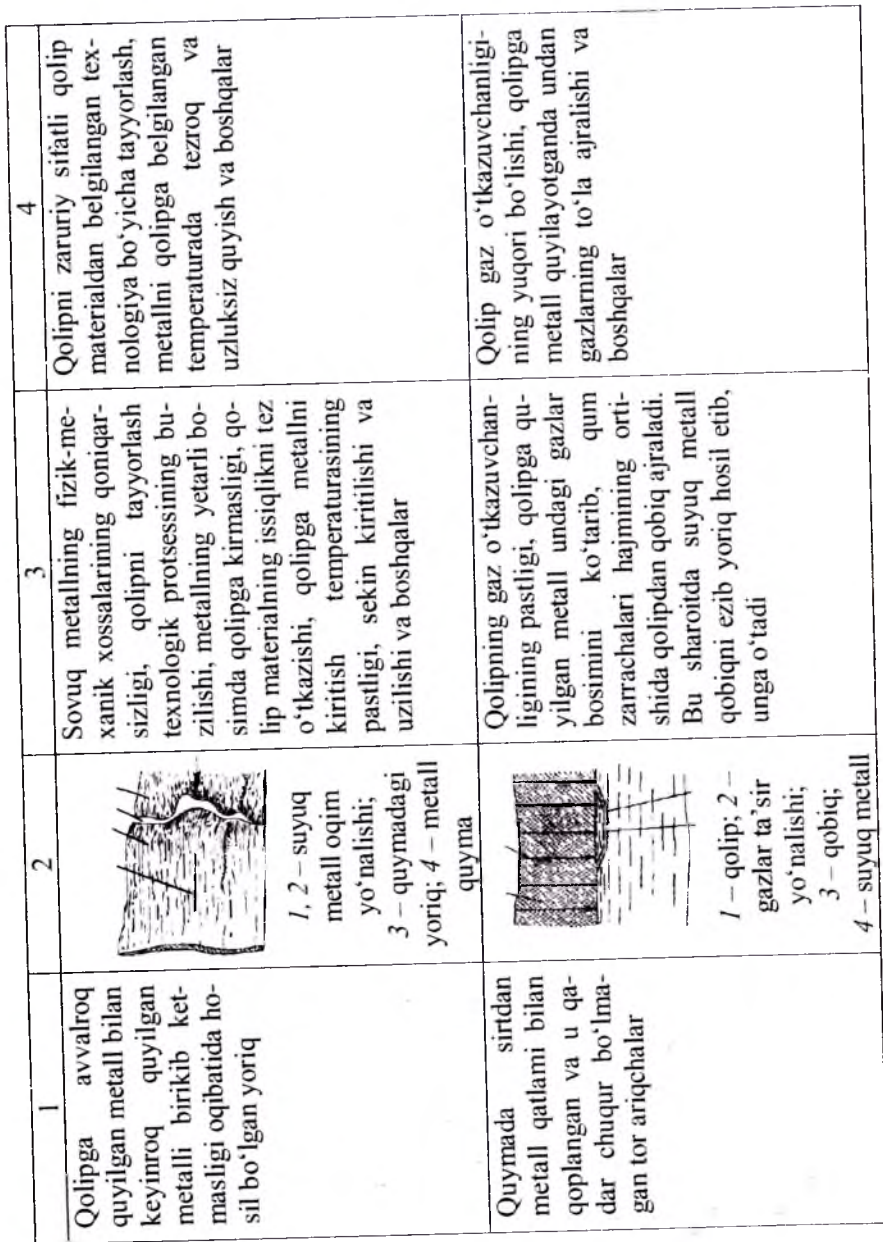 1
2
3
4
Qolipga avvalroq
quyilgan metall bilan
keyinroq quyilgan
metalli birikib ket-
masligi oqibatida ho-
sil bo‘lgan yoriq
1, 2 – suyuq
metall oqim
yo‘nalishi;
3 – quymadagi
yoriq; 4 – metall
quyma
Sovuq metallning fizik-me-
xanik xossalarining qoniqar-
sizligi, qolipni tayyorlash
texnologik protsessining bu-
zilishi, metallning yetarli bo-
simda qolipga kirmasligi, qo-
lip materialning issiqlikni tez
o‘tkazishi, qolipga metallni
kiritish temperaturasining
pastligi, sekin kiritilishi va
uzilishi va boshqalar
Qolipni zaruriy sifatli qolip
materialdan belgilangan tex-
nologiya bo‘yicha tayyorlash,
metallni qolipga belgilangan
temperaturada tezroq va
uzluksiz quyish va boshqalar
Quymada sirtdan
metall qatlami bilan
qoplangan va u qa-
dar chuqur bo‘lma-
gan tor ariqchalar
1 – qolip; 2 –
gazlar ta’sir
yo‘nalishi;
3 – qobiq;
4 – suyuq metall
Qolipning gaz o‘tkazuvchan-
ligining pastligi, qolipga qu-
yilgan metall undagi gazlar
bosimini ko‘tarib, qum
zarrachalari hajmining orti-
shida qolipdan qobiq ajraladi.
Bu sharoitda suyuq metall
qobiqni ezib yoriq hosil etib,
unga o‘tadi
Qolip gaz o‘tkazuvchanligi-
ning yuqori bo‘lishi, qolipga
metall quyilayotganda undan
gazlarning to‘la ajralishi va
boshqalar